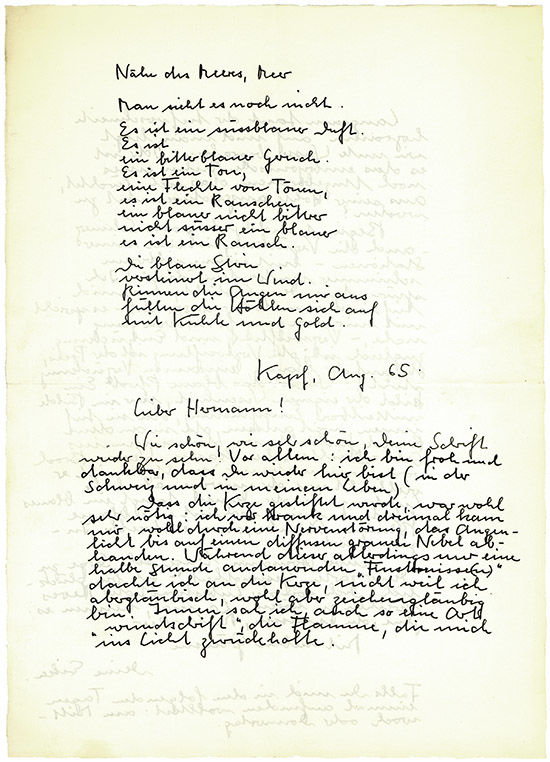 Nähe des Meeres, Meer
Man sieht es noch nicht.
Es ist ein süssblauer Duft.
Es ist
ein bitterblauer Geruch.
Es ist ein Ton,
eine Flechte von Tönen,
es ist ein Rauschen
ein blauer nicht bitter
nicht süsser ein blauer
es ist ein Rausch.
Die blaue Stirn
versteint im Wind.
Rinnen die Augen mir aus
füllen die Höhlen sich auf
mit Kühle und Gold.
Kapf, Aug. 65.
Lieber Hermann!
Wie schön, wie sehr schön, Deine Schrift
wieder zu sehn! Vor allem: ich bin froh und
dankbar, dass Du wieder hier bist (in der
Schweiz und in meinem Leben)
Dass die Kerze gestiftet wurde, war wohl
sehr nötig: ich war krank und dreimal kam
mir, wohl durch eine Nervenstörung, das Augen-
licht bis auf einen diffusen grauen Nebel ab-
handen. Während dieser allerdings nur eine
halbe Stunde andauernden "Finsternisse(n)"
dachte ich an die Kerze, nicht weil ich
abergläubisch, wohl aber zeichengläubig
bin. Innen sah ich, auch so eine Art
"Schrift", die Flamme, die mich
"ins Licht zurückholte.